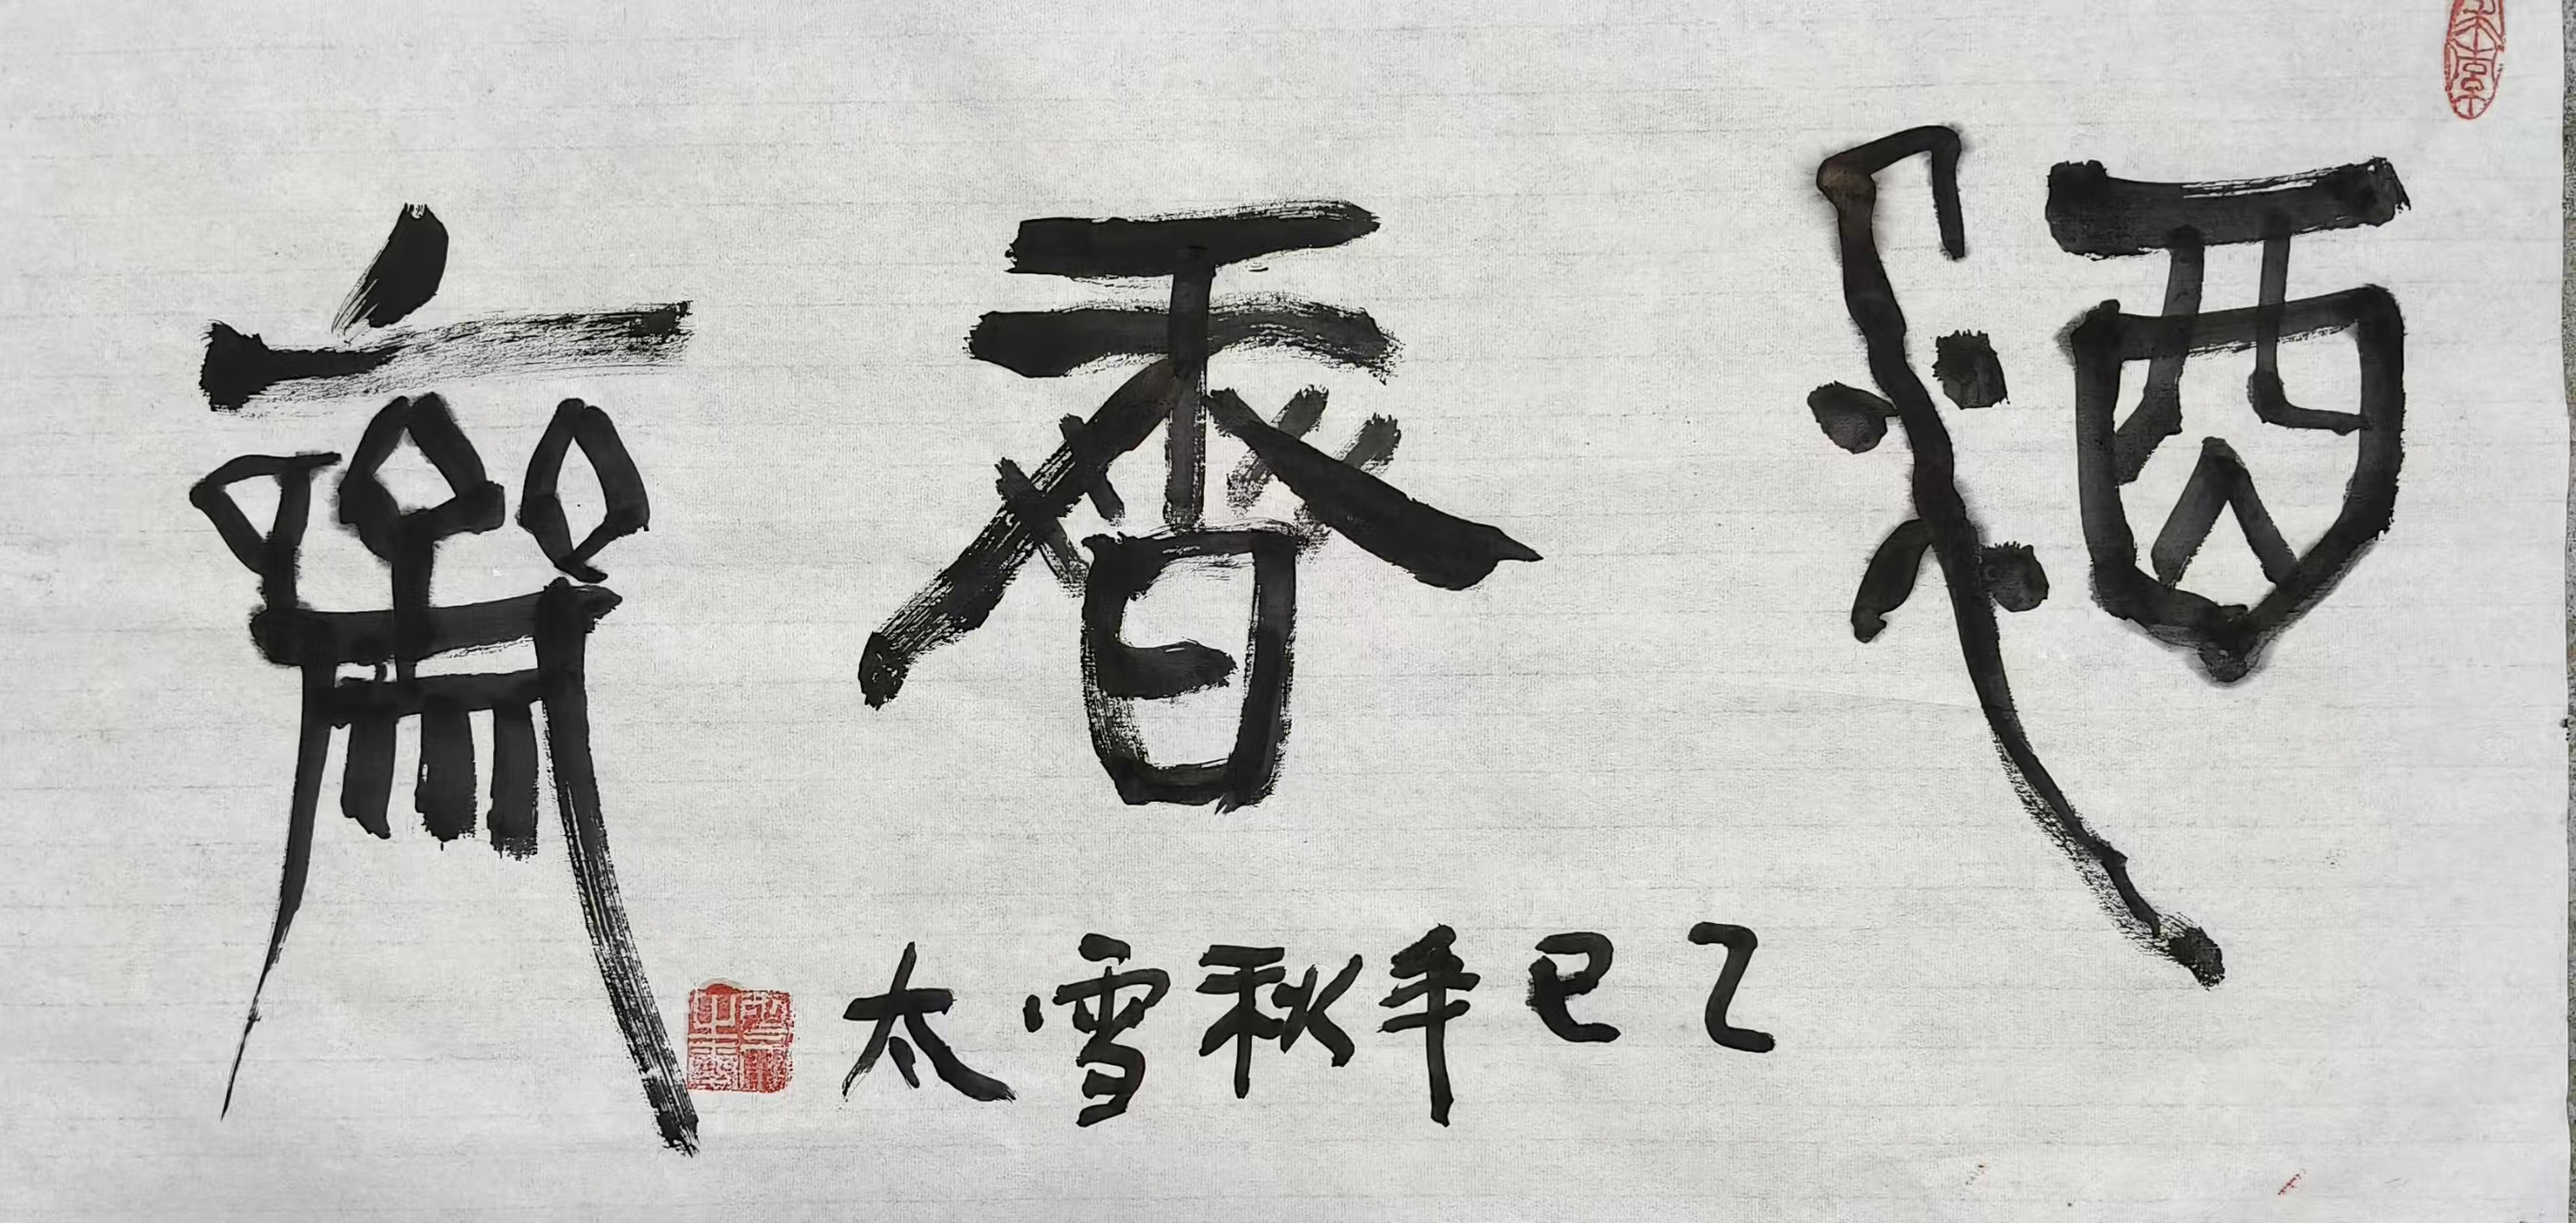 酒香齋
乙巳年秋雪太